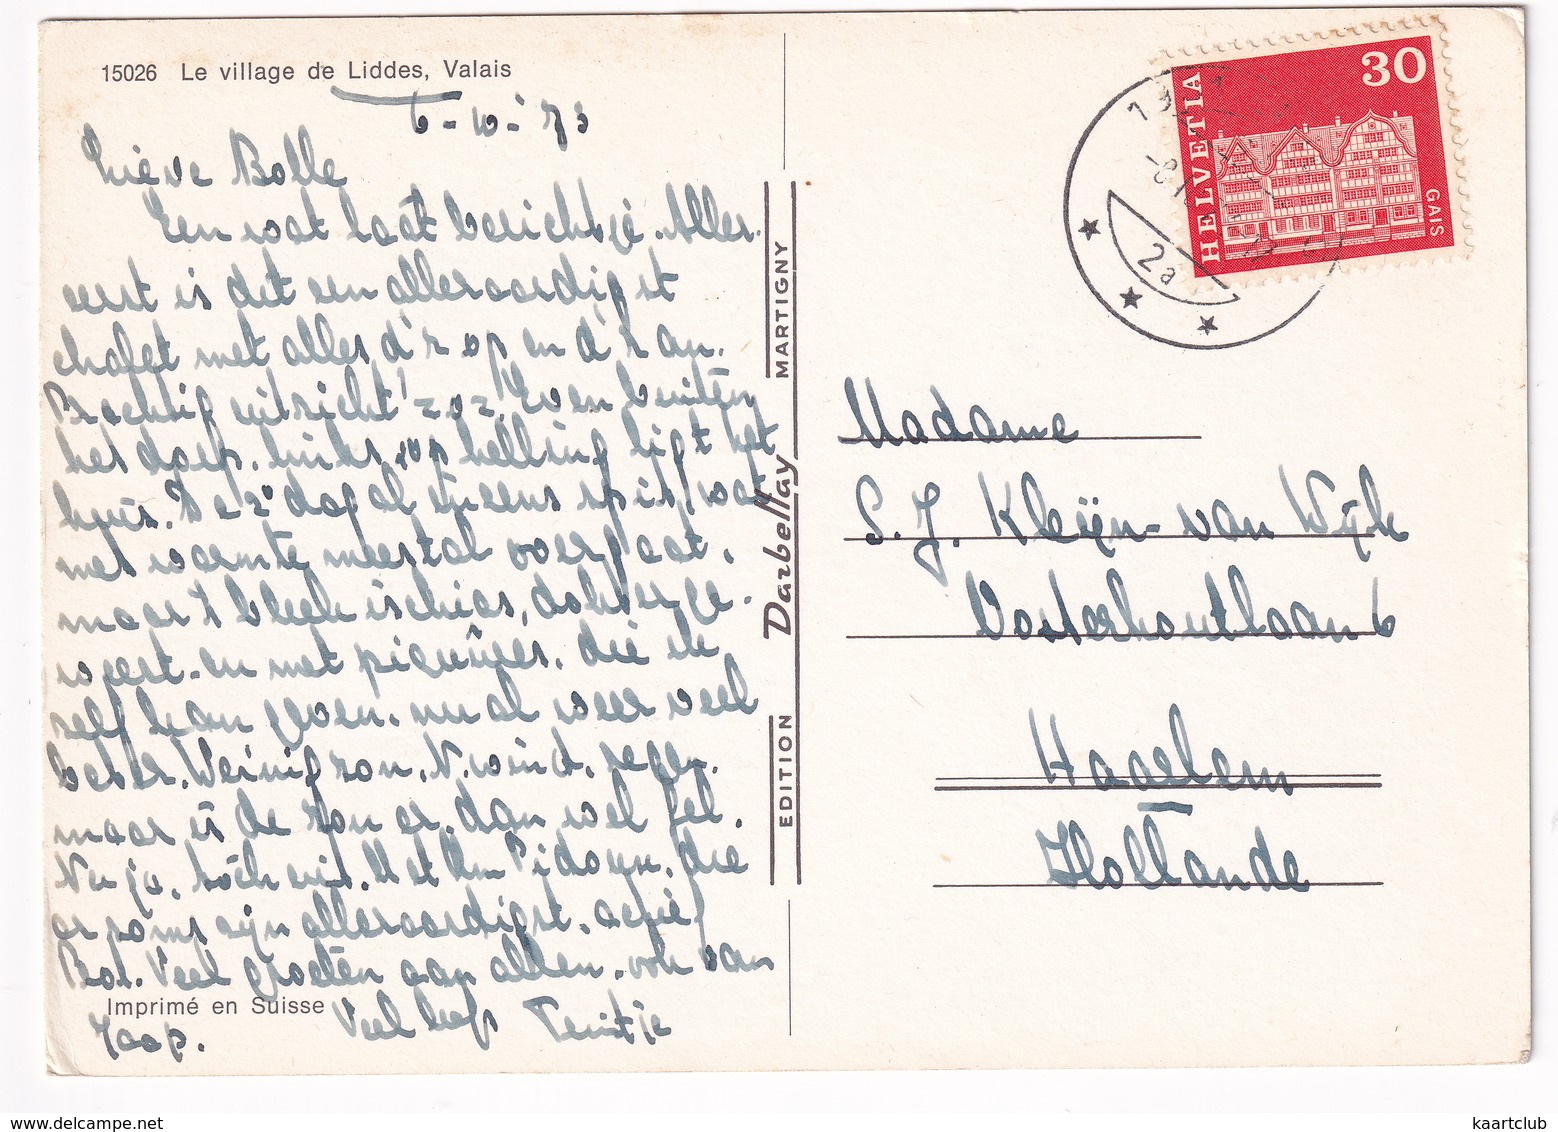 15026 Le village de Liddes, Valais
6-10-'73
Lieve Bolle
Een wat laat berichtje. Aller
eerst is dit een alleraardigst
chalet met alles d'r op en d'r an.
Prachtig uitzicht Z.O.Z. Even buiten
het dorp, links op helling ligt het
huis. De 2e dag al ineens spit, wat
met warmte meestal overgaat,
maar 't bleek ischias, dokter ge-
weest en met piqûres, die ik
zelf kan geven, nu al weer veel
beter. Weinig zon, N. wind, regen,
maar is de zon er, dan wel fel.
Nu ja, toch uit. Met Pidoux, die
er soms zijn alleraardigst,
Bof. Veel groeten aan allen, ook van
Imprimé en Suisse
Jaap. Veel liefs Teuntje
EDITION Darbellay MARTIGNY
HELVETIA
30
GAIS
2a
Madame
S. J. Kleijn-van Wijk
Oosterhoutlaan 6
Haarlem
Hollande
www.delcampe.net
kaartclub